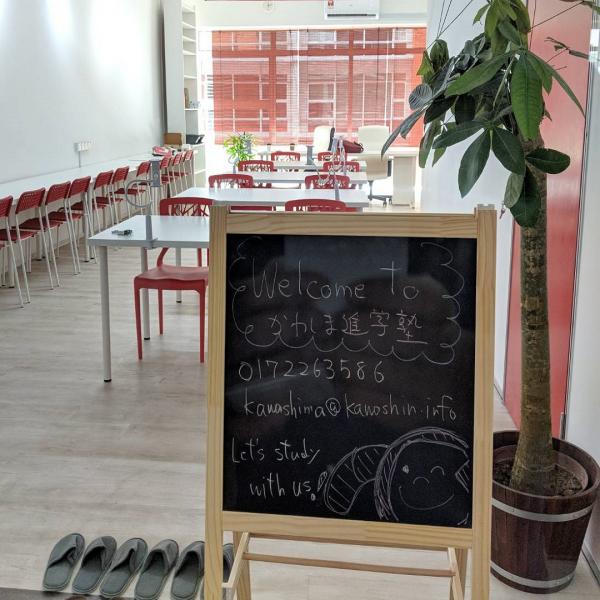 Welcome to
かわしま進学塾
0172263586
kawashima@kawashin.info
Let's study
with us!